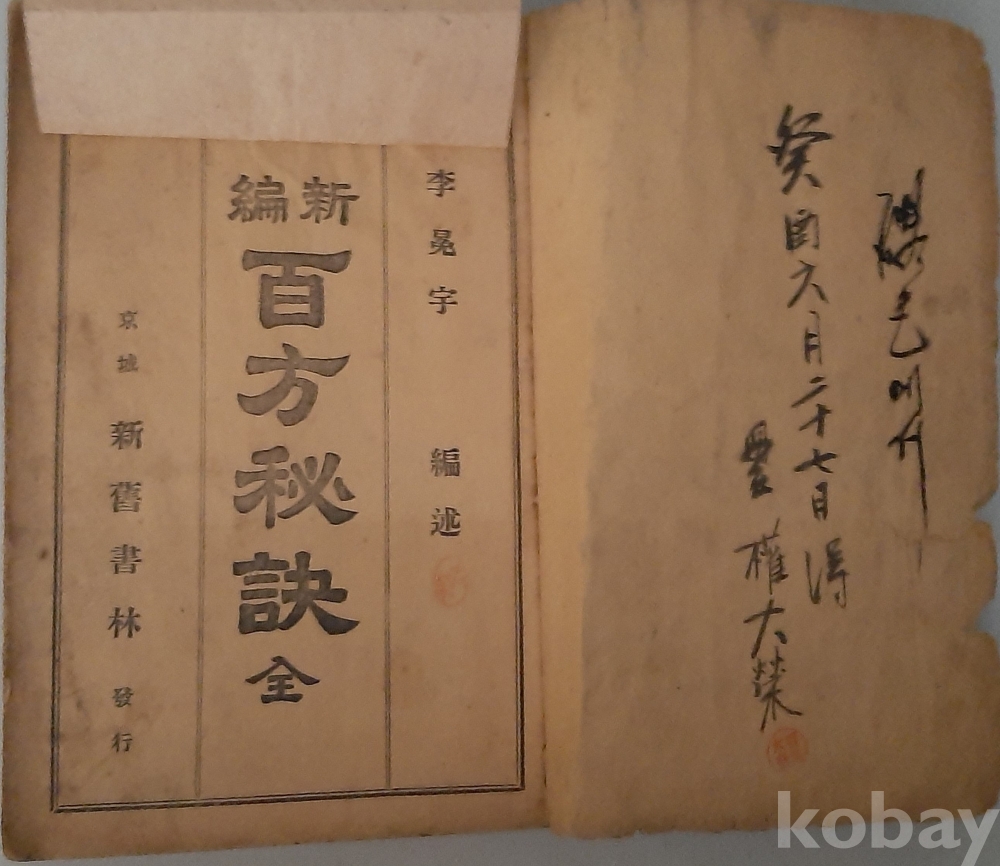 癸酉六月二十七日得
權大榮
李冕宇 編述
新編 百方秘訣 全
京城 新舊書林 發行
kobay